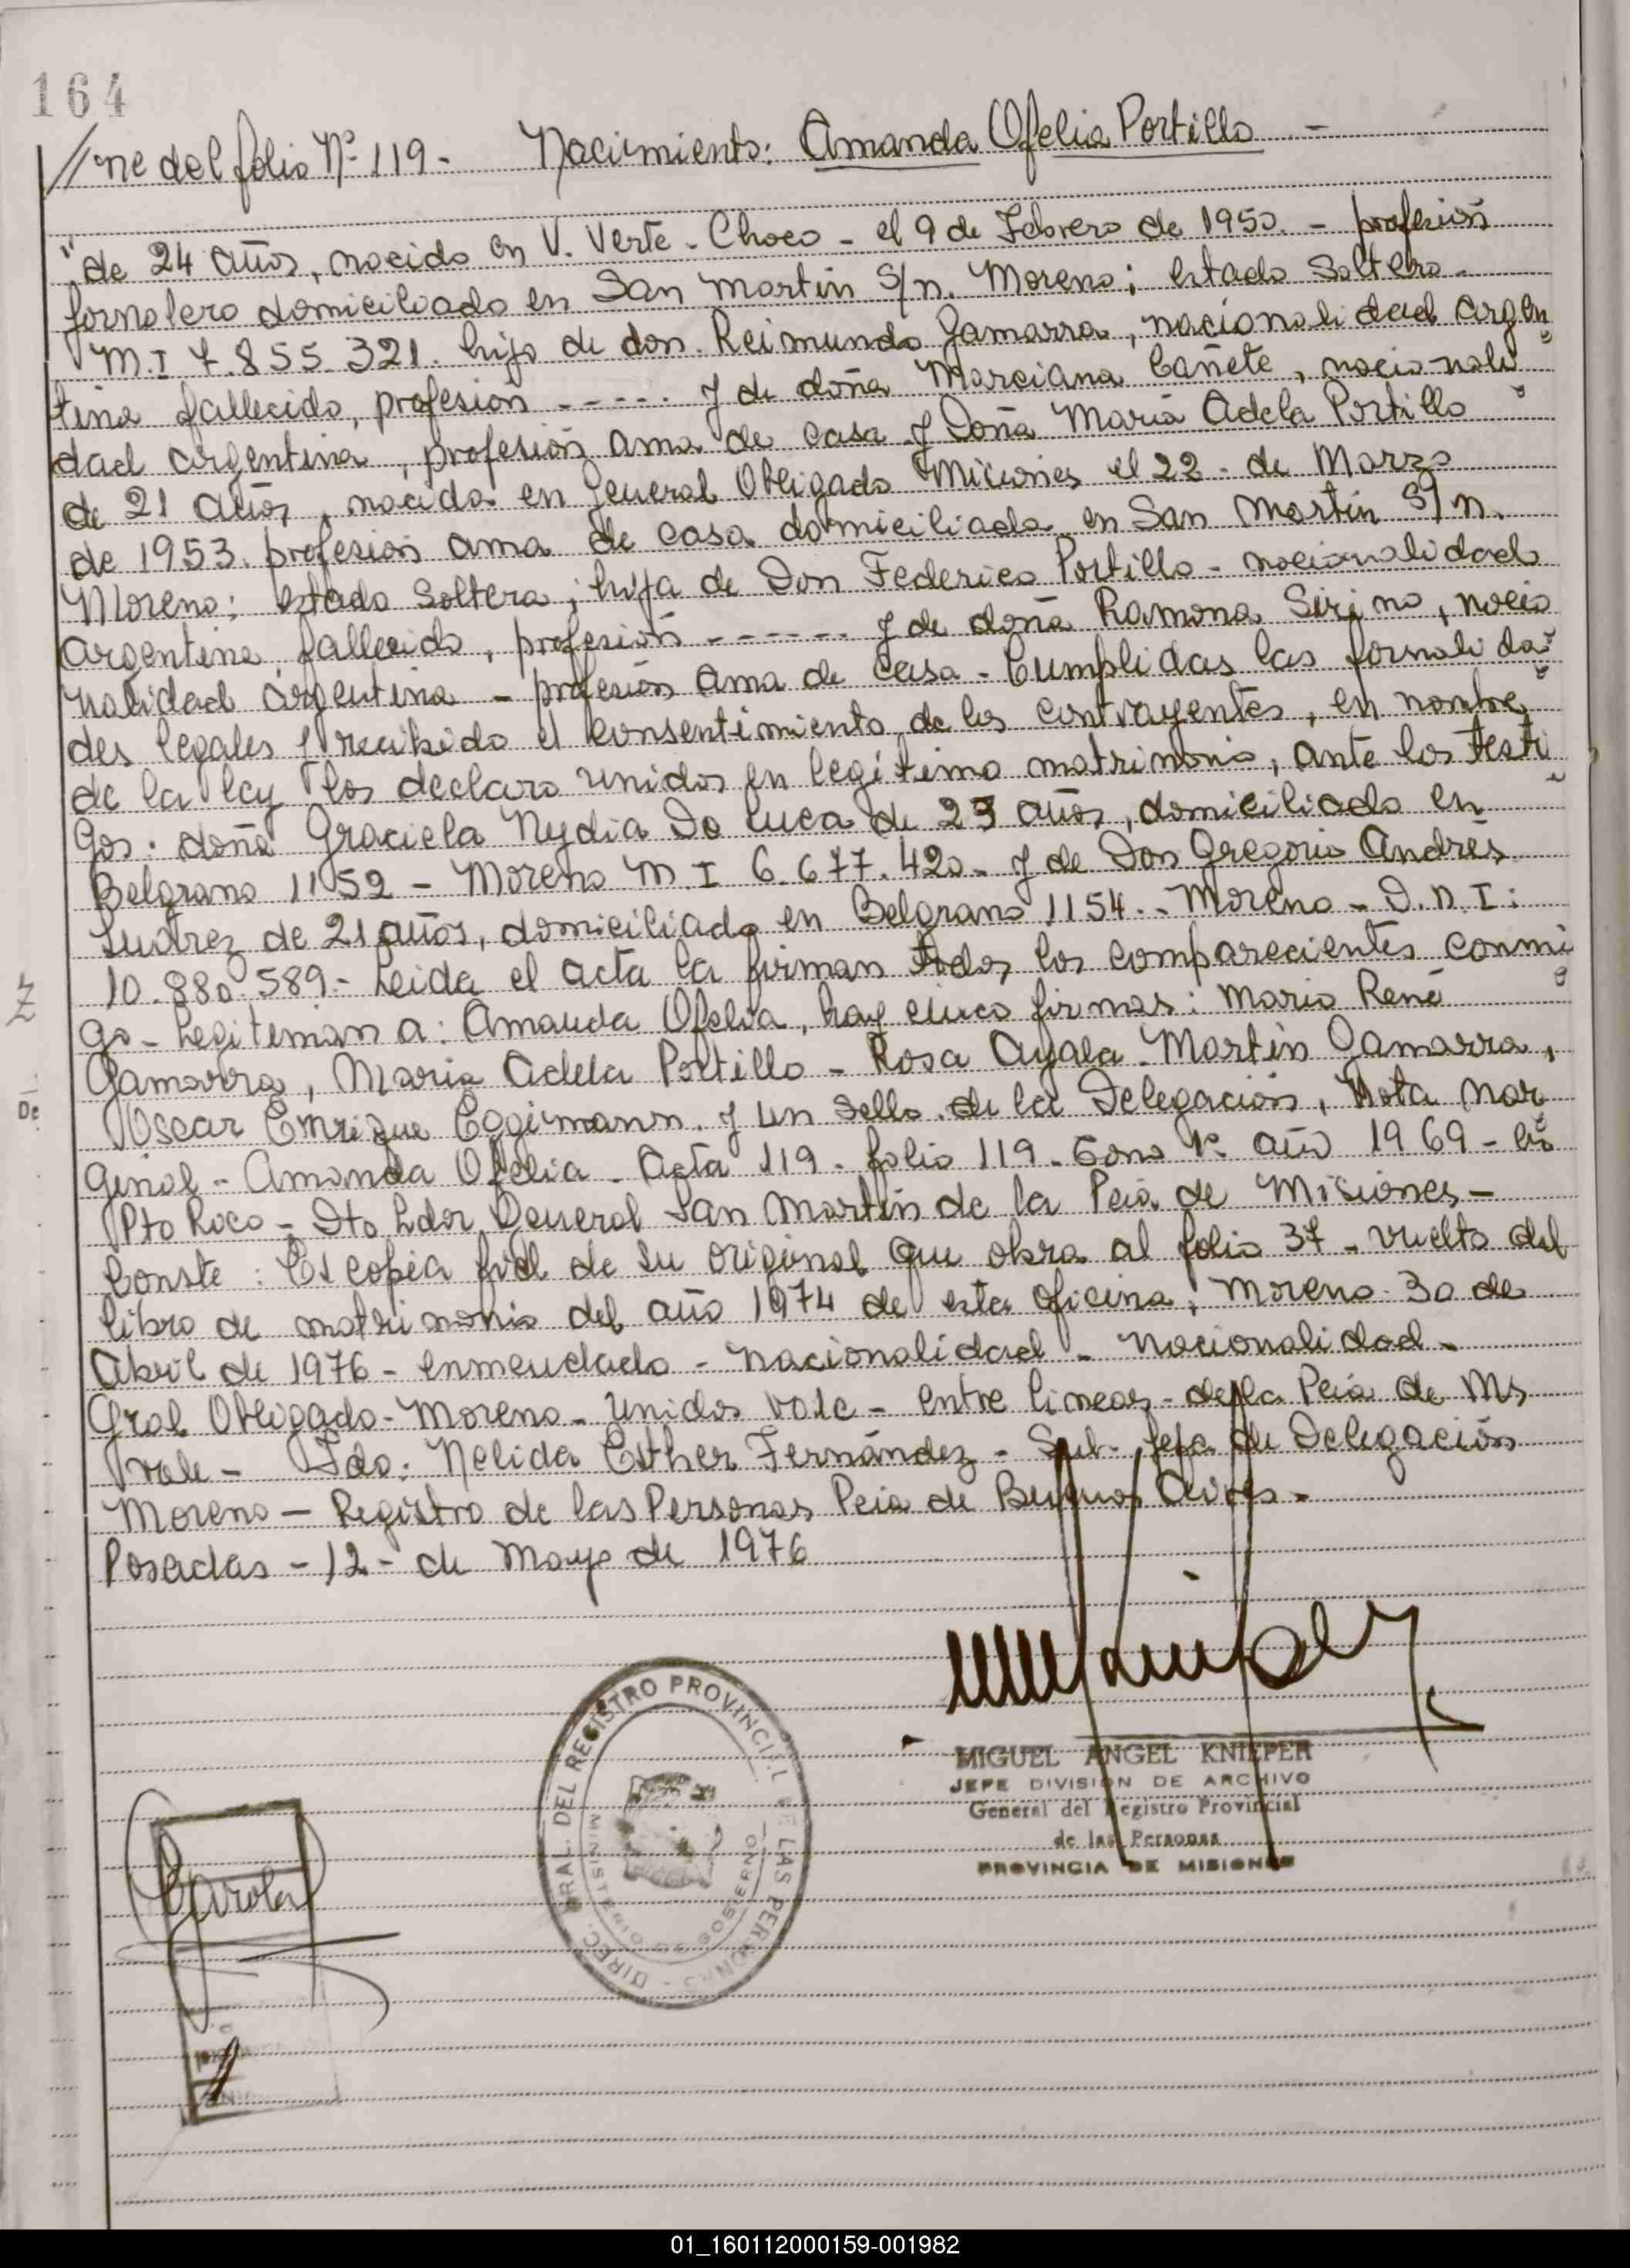 164
//ne del folio Nº 119.- Nacimiento: Amanda Ofelia Portillo.-
"de 24 años, nacido en V. Verte - Chaco - el 9 de Febrero de 1950. - profesión
jornalero domiciliado en San Martín S/n. Moreno; estado Soltero.-
M.I 7.855.321. hijo de don. Reimundo Gamarra, nacionalidad argen
tina fallecido, profesión ----- y de doña Marciana Cañete, naciónali
dad argentina, profesión ama de casa y Doña María Adela Portillo
de 21 años, nacida en General Obligado Misiones el 22 - de Marzo
de 1953. profesión ama de casa domiciliada en San Martín S/n.
Moreno; estado Soltera; hija de Don Federico Portillo - nacionalidad
argentina fallecido, profesión ------ y de doña Ramona Sirino, nacio
nalidad argentina - profesión ama de casa - Cumplidas las formalida
des legales y recibido el consentimiento de los contrayentes, en nombre
de la ley los declaro unidos en legítimo matrimonio, ante los testi
gos. doña Graciela Nydia Do Luca de 23 años, domiciliado en
Belgrano 1152 - Moreno M.I 6.677.420- y de Don Gregorio Andrés
Suárez de 21 años, domiciliado en Belgrano 1154.- Moreno - D.N.I:
10.880.589.- Leida el acta la firman todos los comparecientes conmi
go - Legitiman a: Amanda Ofelia, hay cinco firmas: Mario René
Gamarra, María Adela Portillo - Rosa Ayala - Martín Gamarra,
Oscar Enrique Eggimann. y un sello de la Delegación, Nota Mar
ginal - Amanda Ofelia - Acta 119 - folio 119 - Tomo 1º año 1969 - en
Pto Rico - Dto Ldor General San Martín de la Pcia de Misiones -
Conste: Es copia fiel de su original que obra al folio 37 - vuelta del
libro de matrimonio del año 1974 de esta oficina, Moreno 30 de
Abril de 1976 - enmendado - nacionalidad - nacionalidad -
Gral Obligado - Moreno - Unidos vale - entre lineas - de la Pcia de Ms
vale - Fdo: Nelida Esther Fernández - Sub-Jefa de Delegación
Moreno - Registro de las Personas Pcia de Buenos Aires.
Posadas - 12 - de Mayo de 1976
DIREC. GRAL. DEL REGISTRO PROVINCIAL DE LAS PERSONAS
MINISTERIO DE GOBIERNO
MIGUEL ANGEL KNIEPER
JEFE DIVISION DE ARCHIVO
General del Registro Provincial
de las Personas
PROVINCIA DE MISIONES
01_160112000159-001982